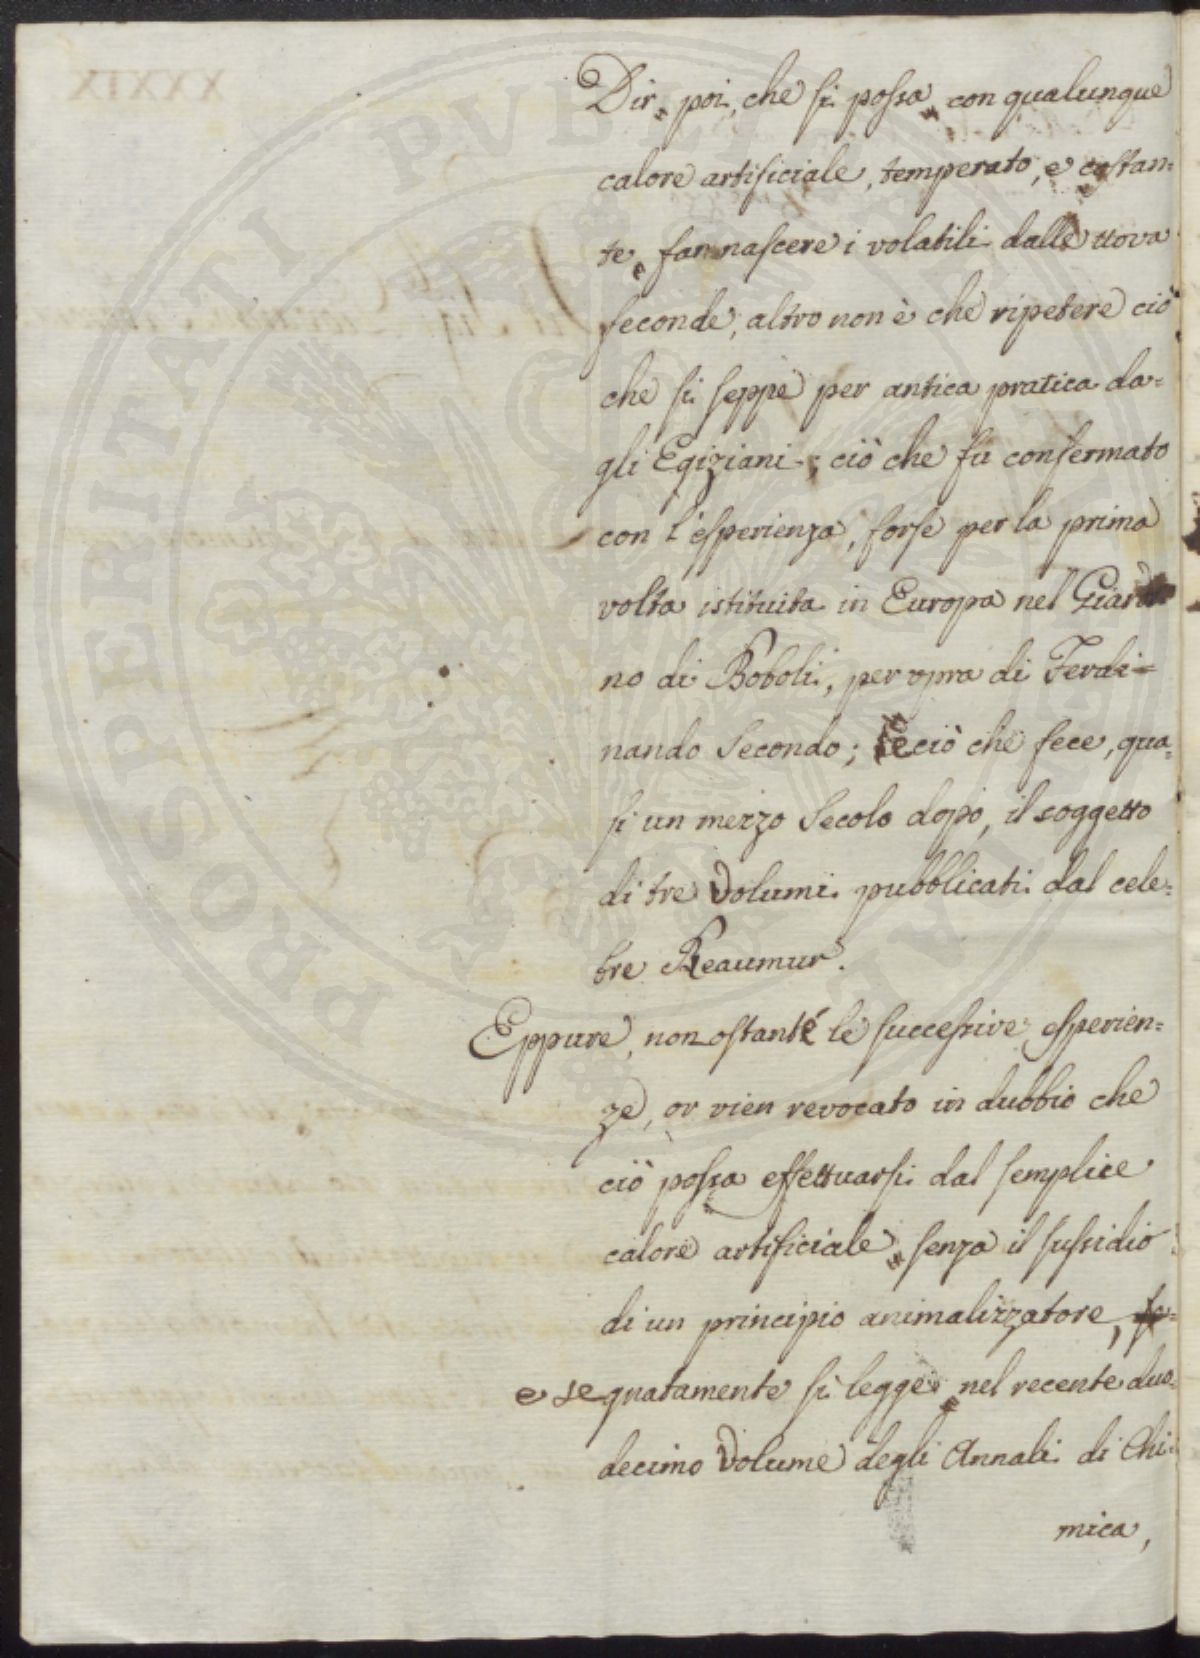 Dir poi, che si possa con qualunque
calore artificiale, temperato, e costan=
te, far nascere i volatili dalle uova
feconde, altro non è che ripetere ciò
che si seppe per antica pratica da=
gli Egiziani; ciò che fu confermato
con l'esperienza, forse per la prima
volta istituita in Europa nel Giardi
no di Boboli, per opra di Ferdi=
nando Secondo; e ciò che fece, qua=
si un mezzo Secolo dopo, il soggetto
di tre Volumi pubblicati dal cele=
bre Reaumur.
Eppure, non ostante le successive esperien=
ze, or vien revocato in dubbio che
ciò possa effettuarsi dal semplice
calore artificiale, senza il sussidio
di un principio animalizzatore,
e segnatamente si legge nel recente duo=
decimo Volume degli Annali di Chi=
mica,
XXXIX
PROSPERITATI PVBLI